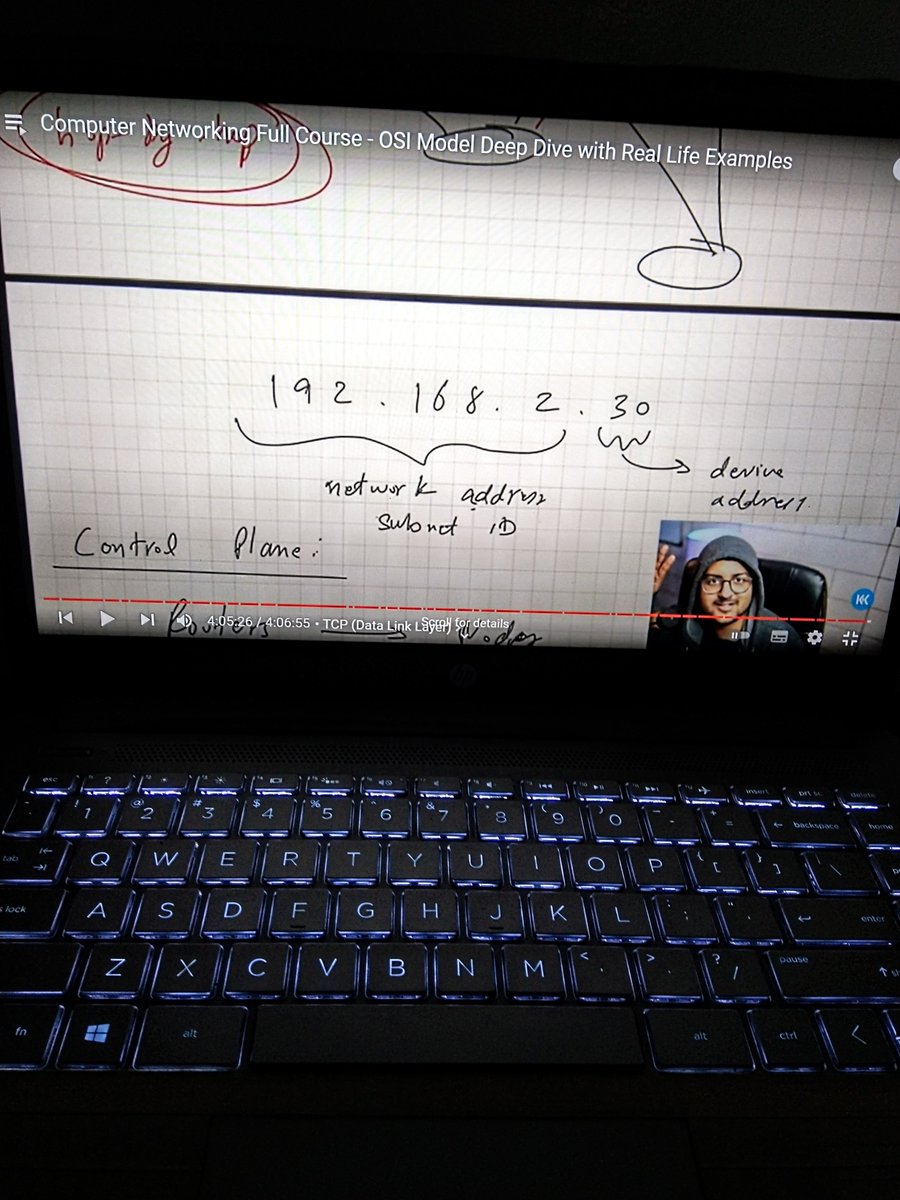 hop by hop
Computer Networking Full Course - OSI Model Deep Dive with Real Life Examples
192.168.2.30
network address
subnet ID
device
address.
Control Plane:
Routers → Nodes
4:05:26 / 4:06:55 • TCP (Data Link Layer)
Scroll for details
hp
esc ?
insert prt sc delete
! 1 @ 2 # 3 $ 4 % 5 ^ 6 & 7 8 ( 9 ) 0 - + = ← backspace home
tab Q W E R T Y U I O P { [ } ] \
s lock A S D F G H J K L : ; " ' enter
Z X C V B N M < , > . ? / pause
fn alt alt ctrl <